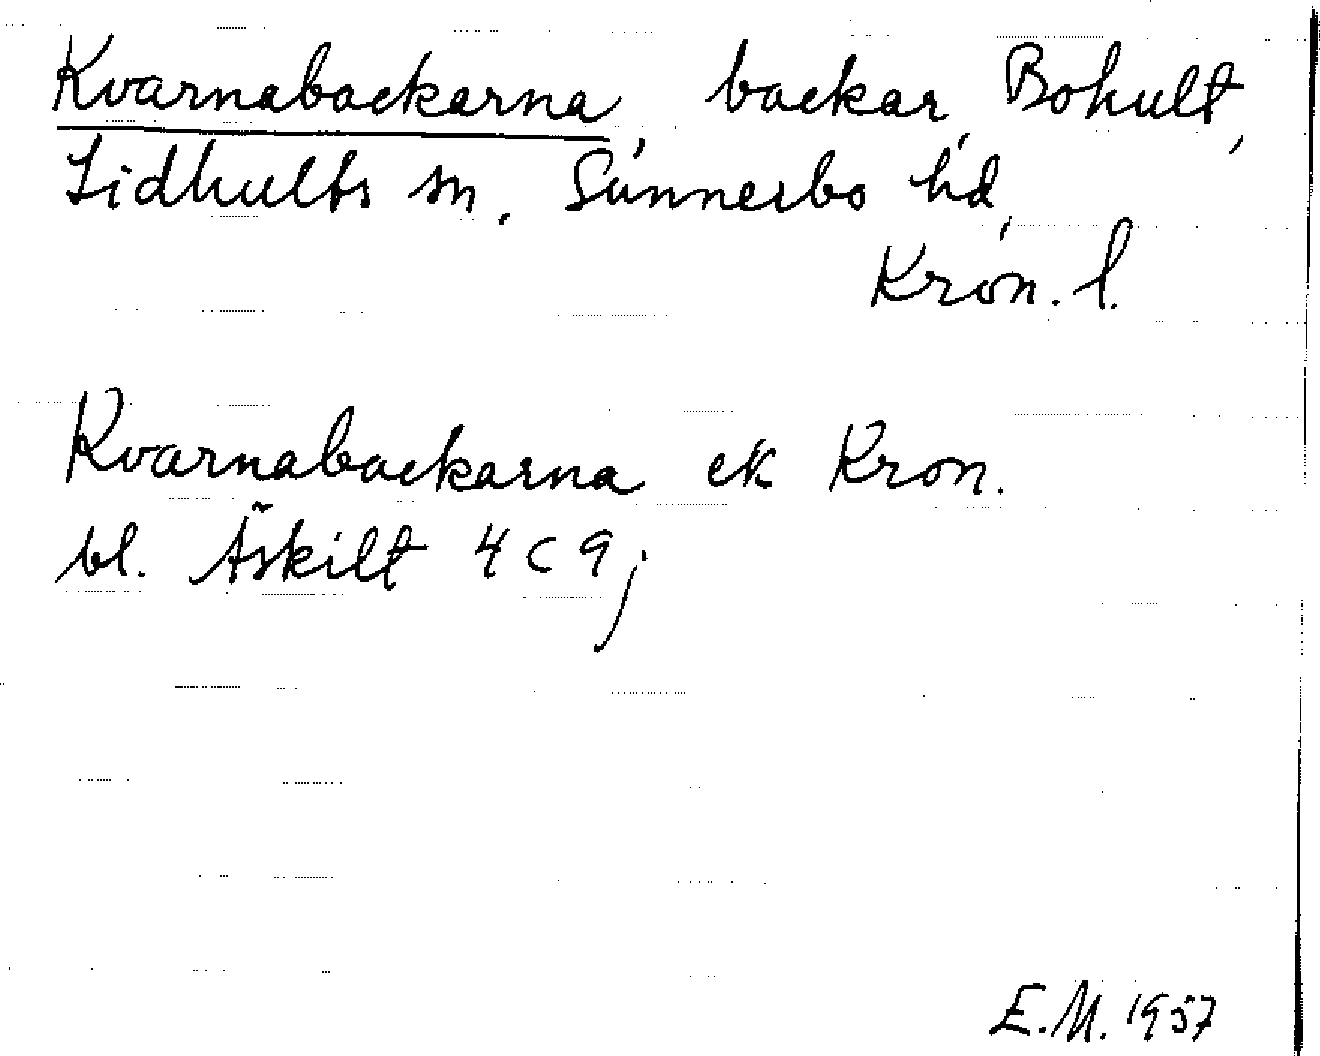 Kvarnabackarna, backar, Bohult,
Lidhults sn, Sunnerbo hd,
Kron. l.
Kvarnabackarna ek Kron.
bl. Äskilt 4 c 9;
E.M. 1957